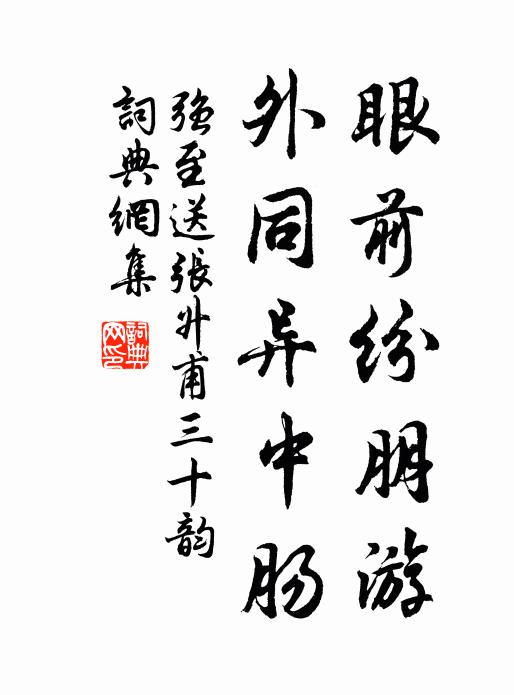 眼前紛朋游
外同异中肠
強至送張升甫三十韵
詞典網集
詞典網印